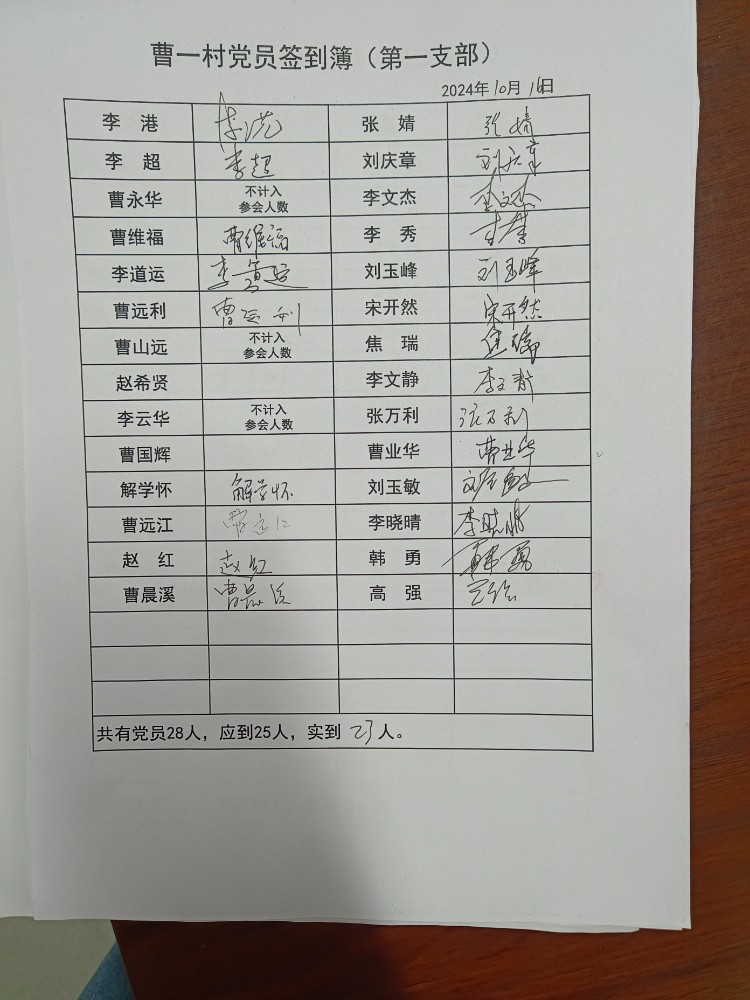 曹一村党员签到簿（第一支部）
2024年10月16日
李 港 李港 张 婧 张婧
李 超 李超 刘庆章 刘庆章
曹永华 不计入 李文杰 李文杰
参会人数
曹维福 曹维福 李 秀 李秀
李道运 李道运 刘玉峰 刘玉峰
曹远利 曹远利 宋开然 宋开然
曹山远 不计入 焦 瑞 焦瑞
参会人数
赵希贤 李文静 李文静
李云华 不计入 张万利 张万利
参会人数
曹国辉 曹业华 曹业华
解学怀 解学怀 刘玉敏 刘玉敏
曹远江 曹远江 李晓晴 李晓晴
赵 红 赵红 韩 勇 韩勇
曹晨溪 曹晨溪 高 强 高强
共有党员28人，应到25人，实到 23 人。